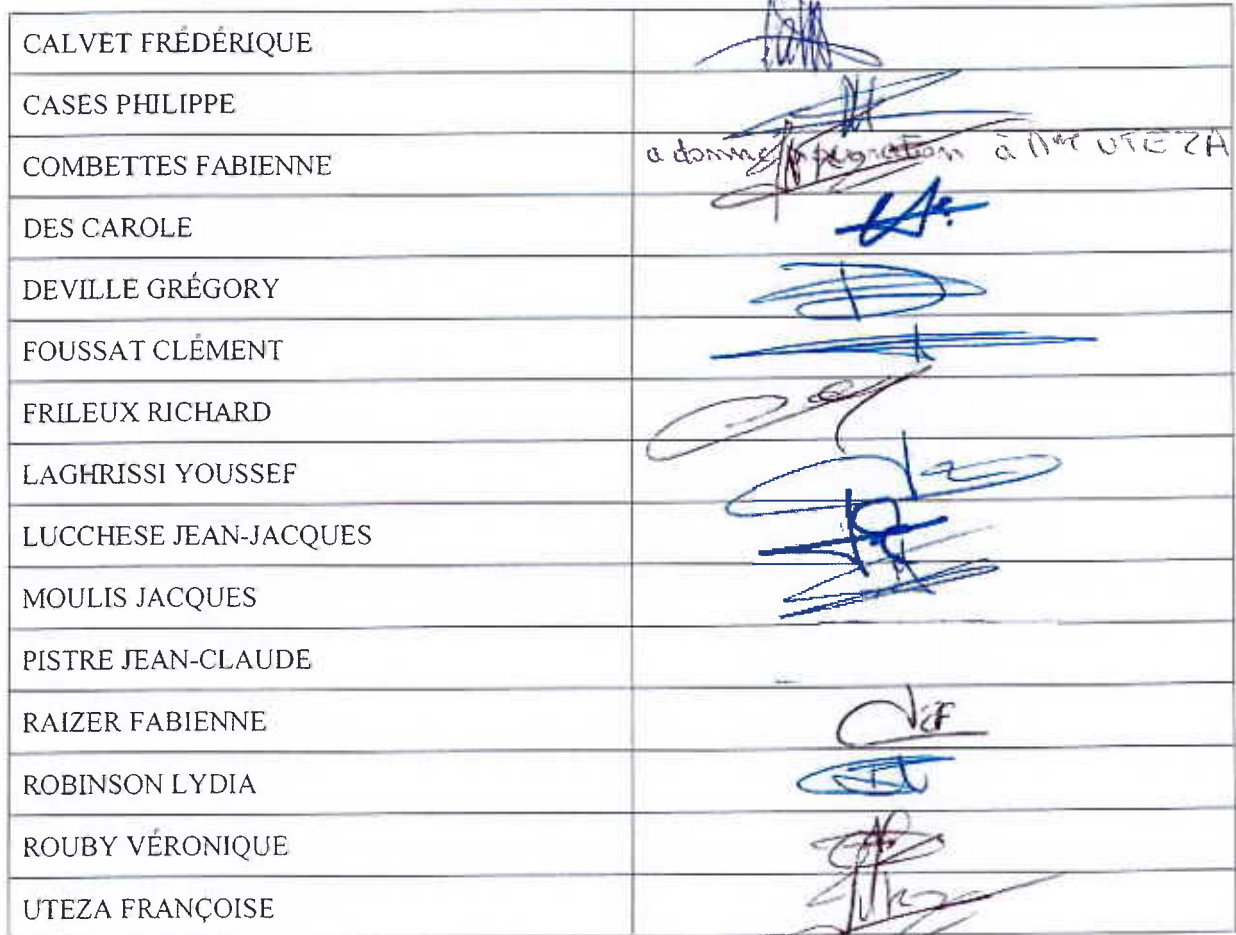 CALVET FRÉDÉRIQUE
CASES PHILIPPE
COMBETTES FABIENNE a donné procuration à Mme UTEZA
DES CAROLE
DEVILLE GRÉGORY
FOUSSAT CLÉMENT
FRILEUX RICHARD
LAGHRISSI YOUSSEF
LUCCHESE JEAN-JACQUES
MOULIS JACQUES
PISTRE JEAN-CLAUDE
RAIZER FABIENNE
ROBINSON LYDIA
ROUBY VÉRONIQUE
UTEZA FRANÇOISE